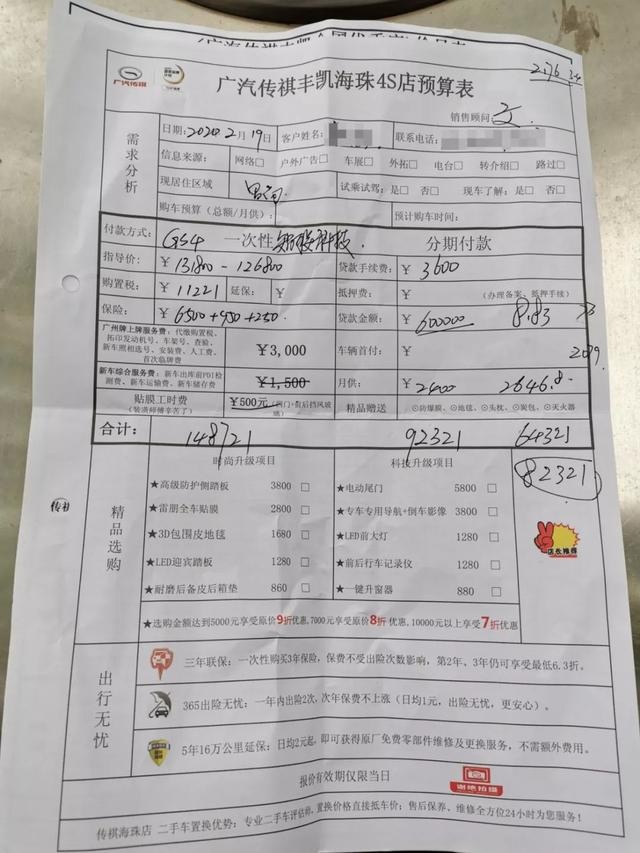 广汽传祺
广汽传祺丰凯海珠4S店预算表
销售顾问:
需求分析
日期:2020.2月19日
客户姓名:
联系电话:
信息来源: 网络□ 户外广告□ 车展□ 外拓□ 电台□ 转介绍□ 路过□
现居住区域
试乘试驾: 是□ 否□ 现车了解: 是□ 否□
购车预算(总额/月供): 预计购车时间:
付款方式: GS4 一次性 分期付款
指导价: ￥131800-126800 贷款手续费: ￥3600
购置税: ￥11221 延保: ￥ 抵押费: ￥ (办理备案、抵押手续)
保险: ￥6500+950+250 贷款金额: ￥600000 8.83
广州牌上牌服务费:代缴购置税、拓印发动机号、车架号、查验、新车照相选号、安装费、人工费、首次临牌费 ￥3,000 车辆首付: ￥
新车综合服务费:新车出库前PDI检测费、新车运输费、新车储存费 ￥1,500 月供: ￥2400 2646.8
贴膜工时费
(装潢师傅辛苦了) ￥500元 精品赠送 ⊙防爆膜、⊙地毯、⊙头枕、⊙炭包、⊙灭火器
合计: 148721 92321 64321
82321
精品选购
时尚升级项目 科技升级项目
★高级防护侧踏板 3800 □ ★电动尾门 5800 □
★雷朋全车贴膜 2800 □ ★专车专用导航+倒车影像 3800 □
★3D包围皮地毯 1680 □ ★LED前大灯 1280 □
★LED迎宾踏板 1280 □ ★前后行车记录仪 1280 □
★耐磨后备皮后箱垫 860 □ ★一键升窗器 880 □
店长推荐
★选购金额达到5000元享受原价9折优惠,7000元享受原价8折 优惠, 10000元以上享受7折优惠
出行无忧
三年联保:一次性购买3年保险,保费不受出险次数影响,第2年、3年仍可享受最低6.3折。
365出险无忧:一年内出险2次,次年保费不上涨(日均1元,出险无忧,更安心)。
5年16万公里延保:日均2元起,即可获得原厂免费零部件维修及更换服务,不需额外费用。
报价有效期仅限当日
谢绝拍摄
传祺海珠店 二手车置换优势:专业二手车评估师,置换价格直接抵车价;售后保养、维修全方位24小时为您服务!